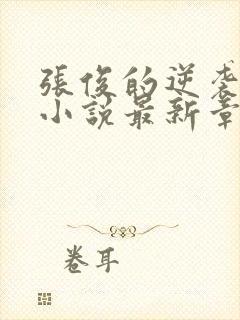 張俊的逆袭
小説最新章
卷耳